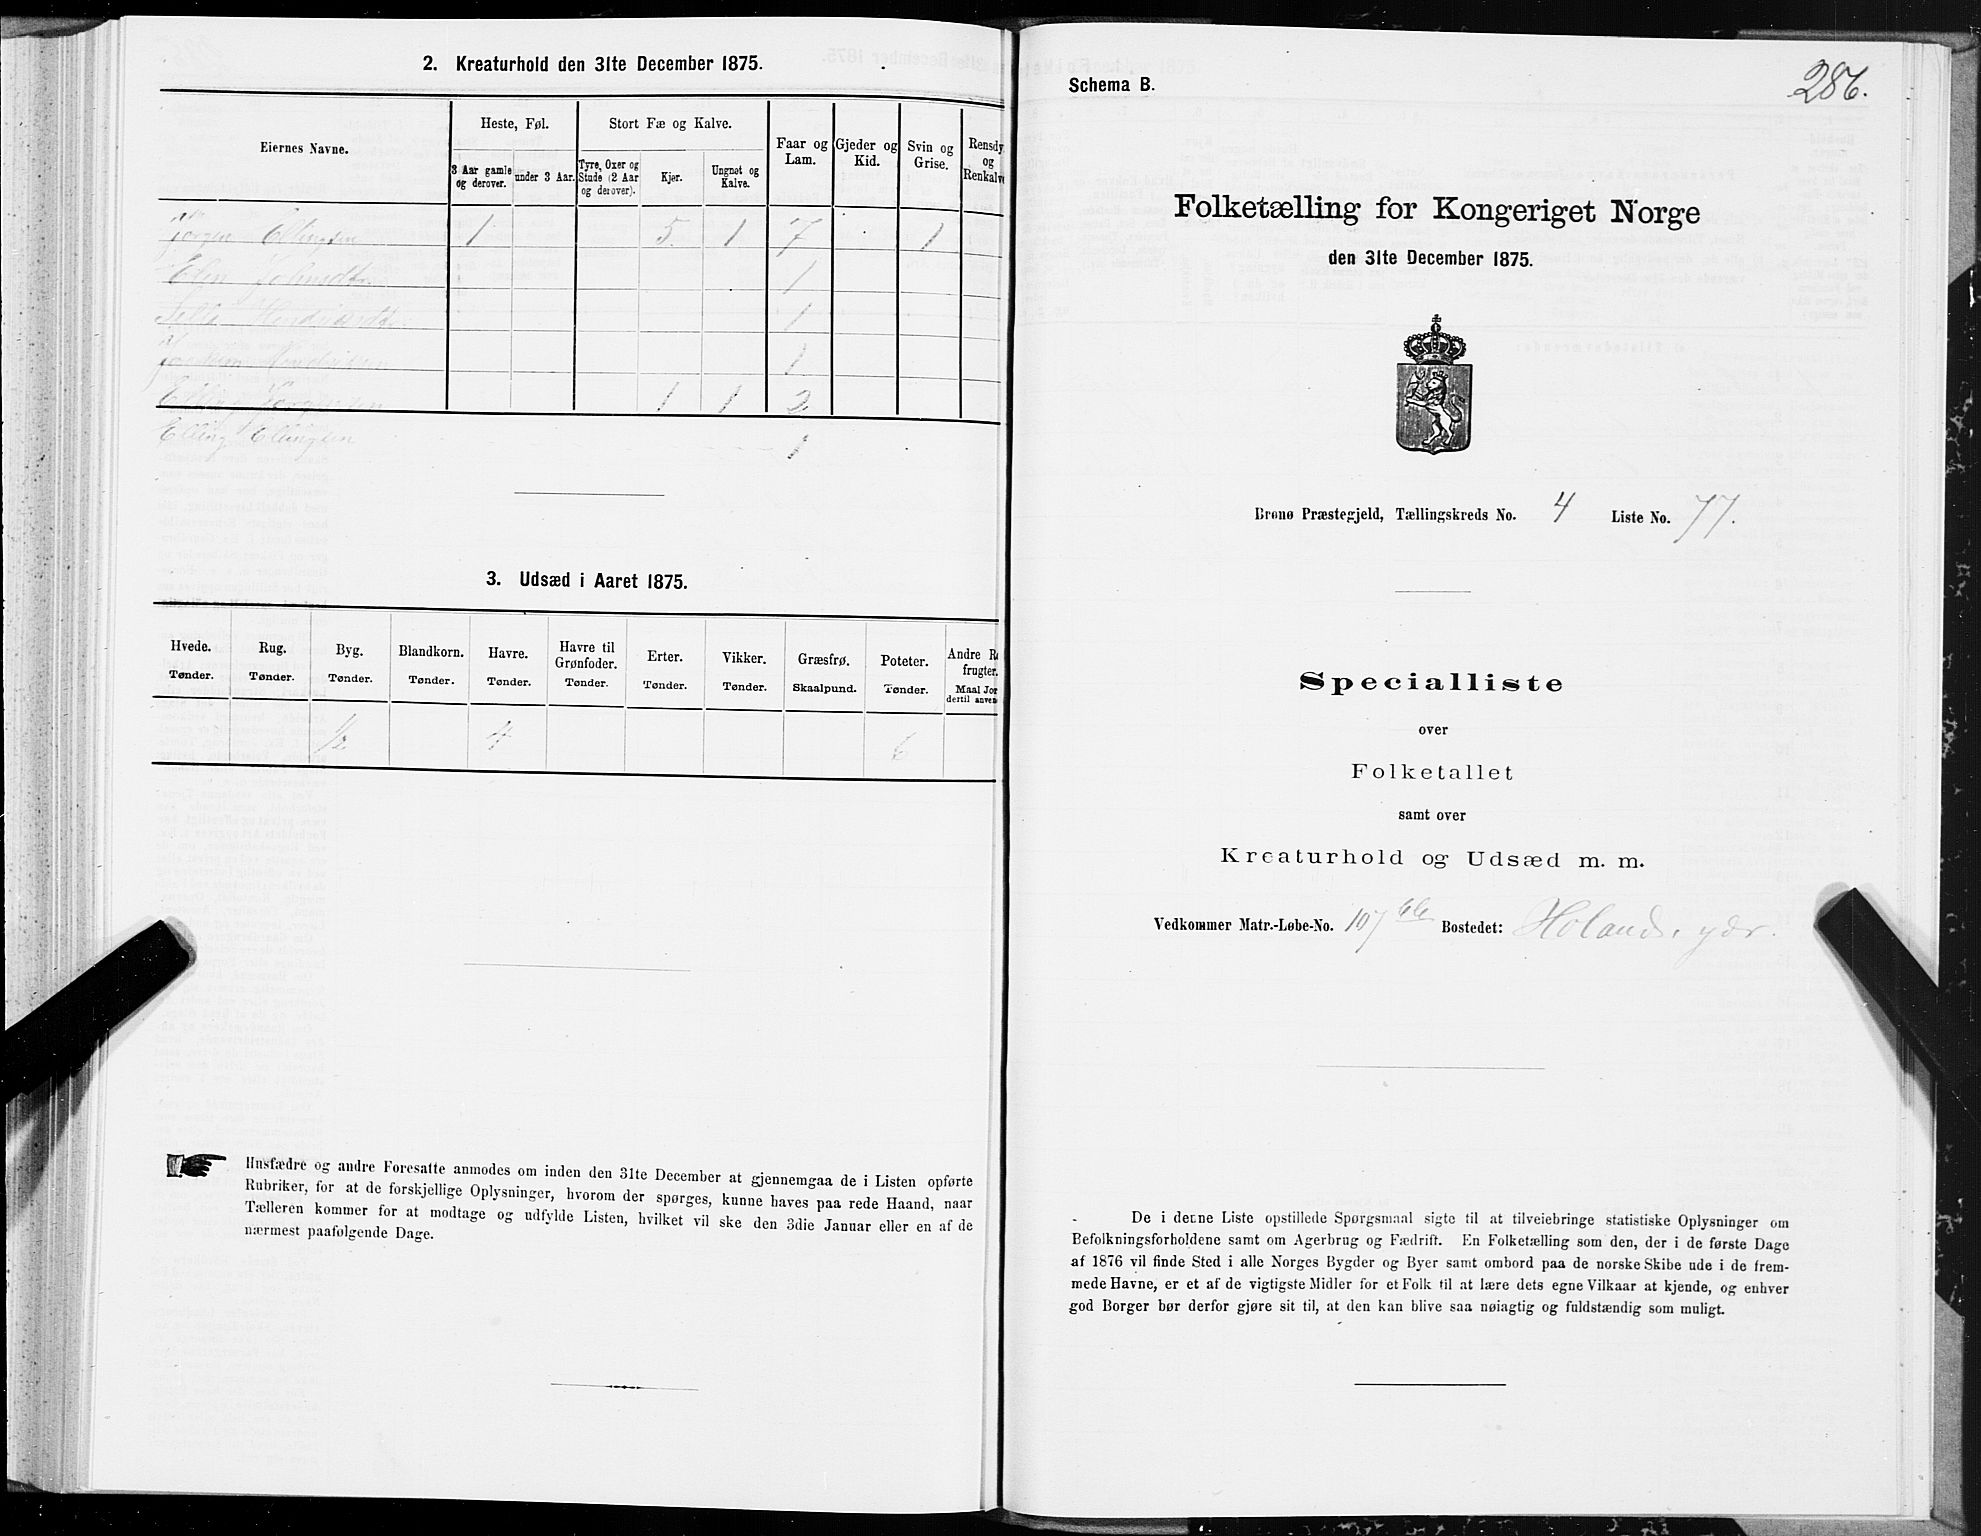 2. Kreaturhold den 31te December 1875.
Eiernes Navne.
Heste, Føl.
Stort Fæ og Kalve.
Faar og Lam.
Gjeder og Kid.
Svin og Grise.
Rensdy
og
Renkalve
3 Aar gamle og derover.
under 3 Aar.
Tyre, Oxer og Stude (2 Aar og derover).
Kjer.
Ungnøt og Kalve.
Jørgen Ellingsen 1 5 1 7 1
Elen 1
1
1
Elling Jørgensen 1 1 2
Elling Ellingsen 1
3. Udsæd i Aaret 1875.
Hvede. Rug. Byg. Blandkorn. Havre. Havre til Grønfoder. Erter. Vikker. Græsfrø. Poteter. Andre R
frugter.
Tønder. Tønder. Tønder. Tønder. Tønder. Tønder. Tønder. Tønder. Skaalpund. Tønder. Maal Jor
dertil anven
1/2 4 6
Husfædre og andre Foresatte anmodes om inden den 31te December at gjennemgaa de i Listen opførte
Rubriker, for at de forskjellige Oplysninger, hvorom der spørges, kunne haves paa rede Haand, naar
Tælleren kommer for at modtage og udfylde Listen, hvilket vil ske den 3die Januar eller en af de
nærmest paafølgende Dage.
286.
Schema B.
Folketælling for Kongeriget Norge
den 31te December 1875.
Brønø Præstegjeld, Tællingskreds No. 4 Liste No. 77.
Specialliste
over
Folketallet
samt over
Kreaturhold og Udsæd m. m.
Vedkommer Matr.-Løbe-No. 107 Bostedet: Holand, ydr.
De i denne Liste opstillede Spørgsmaal sigte til at tilveiebringe statistiske Oplysninger om
Befolkningsforholdene samt om Agerbrug og Fædrift. En Folketælling som den, der i de første Dage
af 1876 vil finde Sted i alle Norges Bygder og Byer samt ombord paa de norske Skibe ude i de frem-
mede Havne, er et af de vigtigste Midler for et Folk til at lære dets egne Vilkaar at kjende, og enhver
god Borger bør derfor gjøre sit til, at den kan blive saa nøiagtig og fuldstændig som muligt.